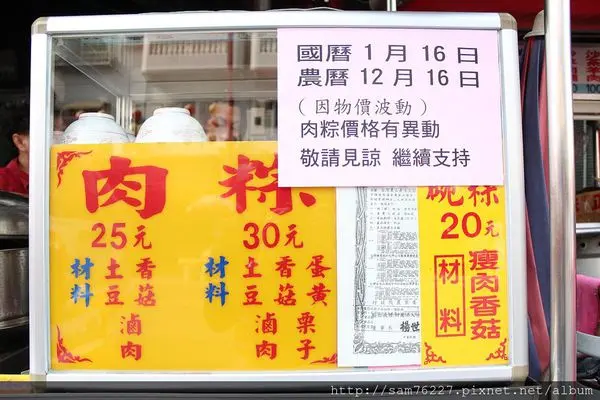 國曆 1 月 16 日
農曆 12 月 16 日
( 因物價波動 )
肉粽價格有異動
敬請見諒 繼續支持
肉粽
25元
30元
材料 土豆 香菇 滷肉
材料 土豆 香菇 蛋黃 滷肉 栗子
碗粿
20元
材料
瘦肉香菇
楊世
http://sam76227.pixnet.net/album